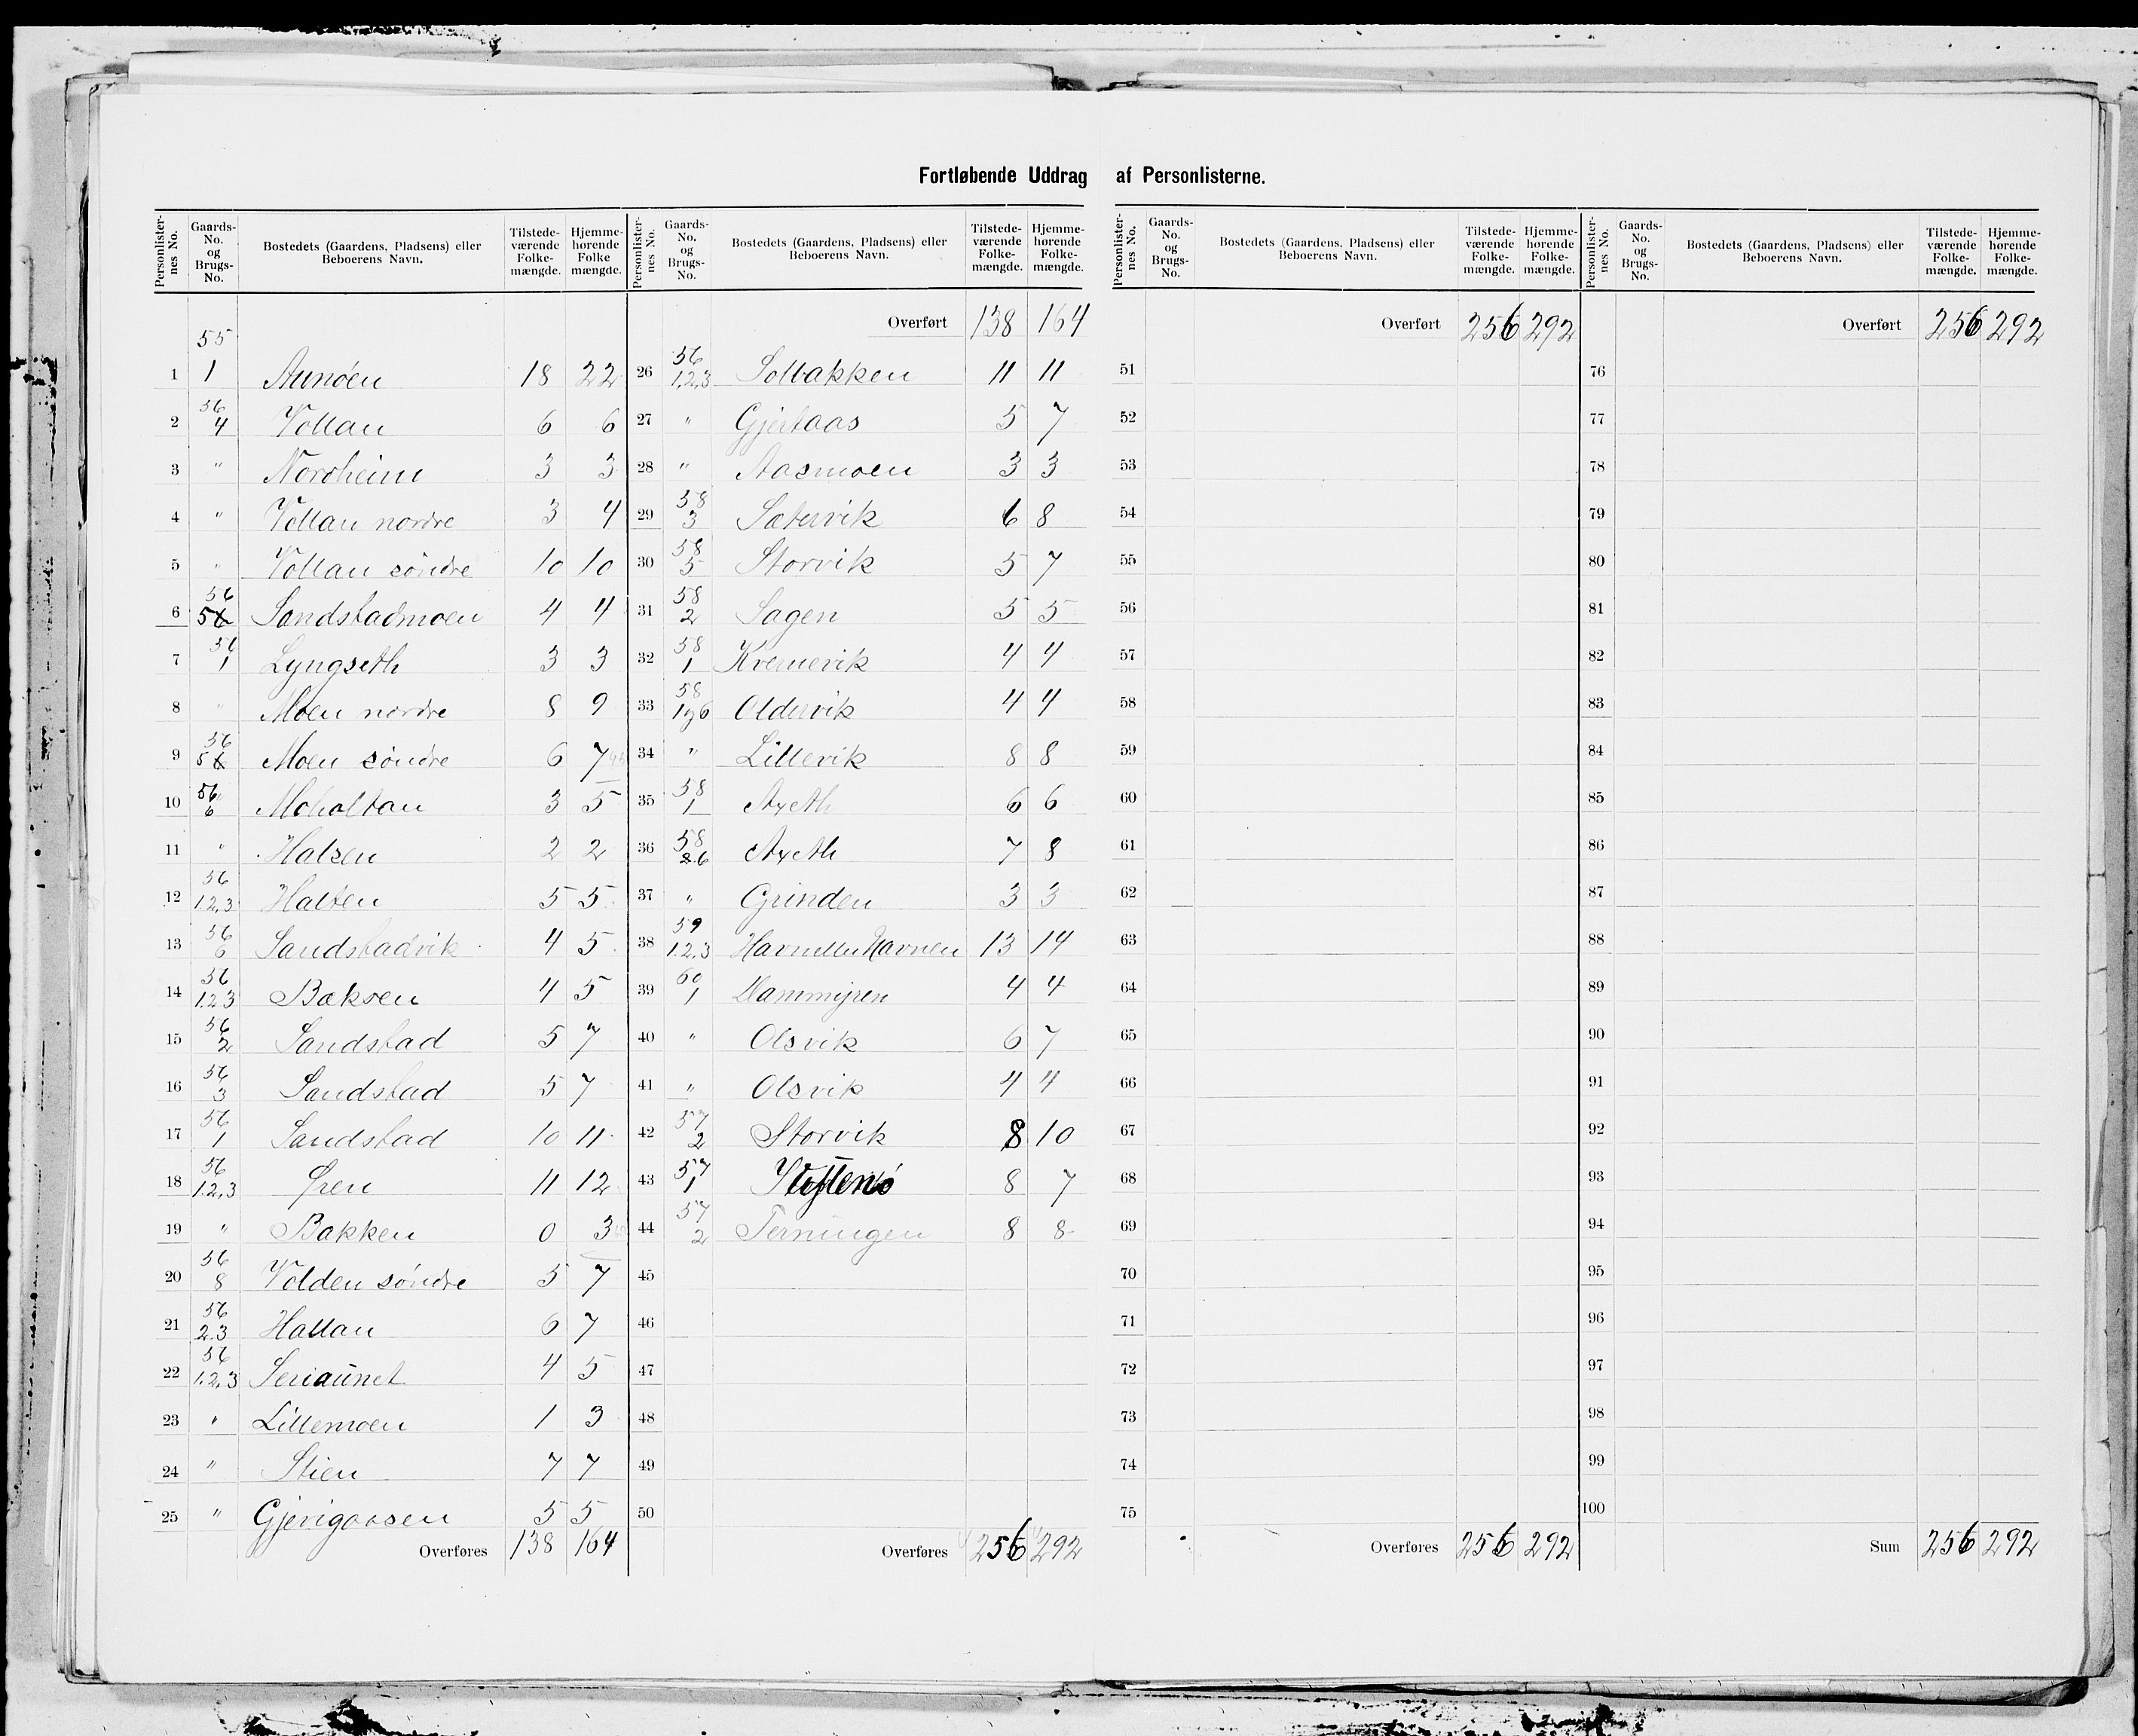 Fortløbende Uddrag af Personlisterne.
Personlisternes No. Gaards-No. og Brugs-No. Bostedets (Gaardens, Pladsens) eller Beboerens Navn. Tilstedeværende Folkemængde. Hjemmehørende Folkemængde.
55
1 1 Aunøen 18 22
2 56 4 Vollan 6 6
3 " Nordheim 3 3
4 " Vollan nordre 3 4
5 " Vollan søndre 10 10
6 56 5 Sandstadmoen 4 4
7 56 1 Lyngseth 3 3
8 " Moen nordre 8 9
9 56 5 Moen søndre 6 7
10 56 6 Moholtan 3 5
11 " Halsen 2 2
12 56 1.2.3 Halten 5 5
13 56 6 Sandstadvik 4 5
14 56 1.2.3 Bakøen 4 5
15 56 2 Sandstad 5 7
16 56 3 Sandstad 5 7
17 56 1 Sandstad 10 11
18 56 1.2.3 Øren 11 12
19 " Bakken 0 3
20 56 8 Volden søndre 5 7
21 56 2.3 Hallan 6 7
22 56 1.2.3 Seriaunet 4 5
23 " Lillemoen 1 3
24 " Stien 7 7
25 " Gjengaasen 5 5
Overføres 138 164
Personlisternes No. Gaards-No. og Brugs-No. Bostedets (Gaardens, Pladsens) eller Beboerens Navn. Tilstedeværende Folkemængde. Hjemmehørende Folkemængde.
Overført 138 164
26 56 1.2.3 Solbakken 11 11
27 " Gjertaas 5 7
28 " Aasmoen 3 3
29 58 3 Sætervik 6 8
30 58 5 Storvik 5 7
31 58 2 Sagen 5 5
32 58 1 Kvernevik 4 4
33 58 1 og 6 Oldervik 4 4
34 " Lillevik 8 8
35 58 1 Axeth 6 6
36 58 2.6 Axeth 7 8
37 " Grinden 3 3
38 59 1.2.3 Havn eller Havnen 13 14
39 60 1 Hammyren 4 4
40 " Olsvik 6 7
41 " Olsvik 4 4
42 57 2 Storvik 8 10
43 57 1 8 7
44 57 2 Terningen 8 8
45
46
47
48
49
50
Overføres 256 292
Personlisternes No. Gaards-No. og Brugs-No. Bostedets (Gaardens, Pladsens) eller Beboerens Navn. Tilstedeværende Folkemængde. Hjemmehørende Folkemængde.
Overført 256 292
51
52
53
54
55
56
57
58
59
60
61
62
63
64
65
66
67
68
69
70
71
72
73
74
75
Overføres 256 292
Personlisternes No. Gaards-No. og Brugs-No. Bostedets (Gaardens, Pladsens) eller Beboerens Navn. Tilstedeværende Folkemængde. Hjemmehørende Folkemængde.
Overført 256 292
76
77
78
79
80
81
82
83
84
85
86
87
88
89
90
91
92
93
94
95
96
97
98
99
100
Sum 256 292